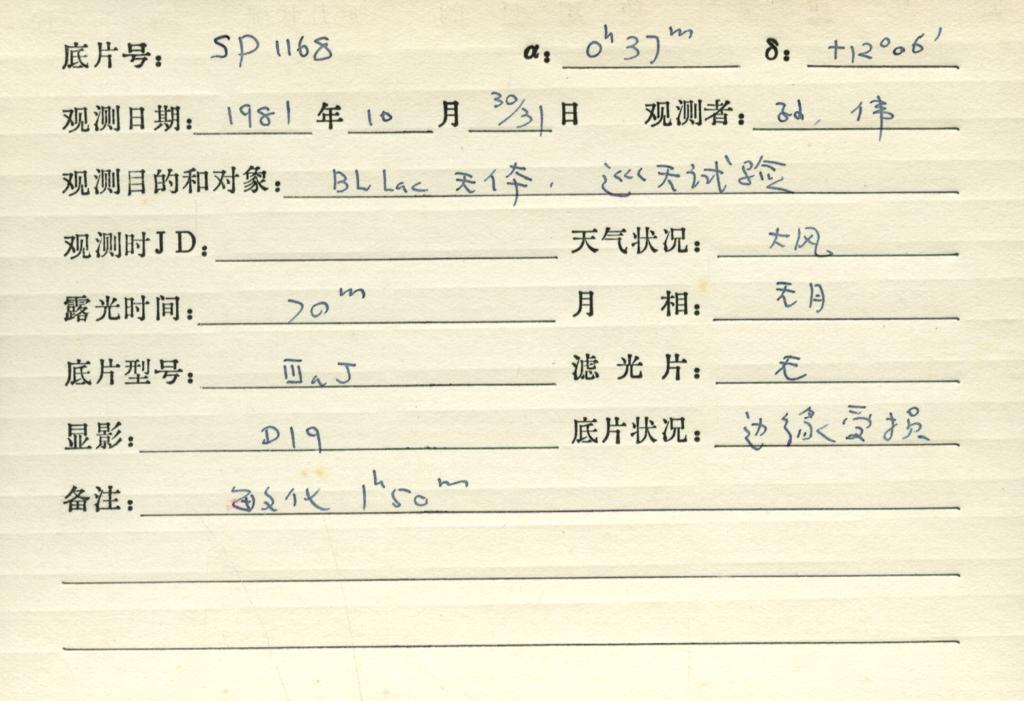 底片号: SP 1168 α: 0ʰ 37ᵐ δ: +12°06′
观测日期: 1981 年 10 月 30/31 日 观测者: 孙, 伟
观测目的和对象: BL Lac 天体. 巡天试验
观测时JD: 天气状况: 大风
露光时间: 70ᵐ 月 相: 无月
底片型号: ⅢaJ 滤 光 片: 无
显影: D19 底片状况: 边缘受损
备注: 敏化 1ʰ50ᵐ